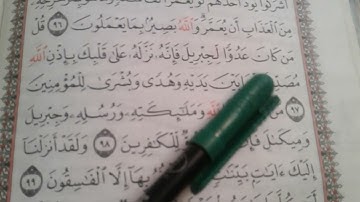 أَشْرَكُوا يَوَدُّ أَحَدُهُمْ لَوْ يُعَمَّرُ
مِنَ ٱلْعَذَابِ أَن يُعَمَّرَ وَٱللَّهُ بَصِيرٌۢ بِمَا يَعْمَلُونَ ٩٦ قُلْ
مَن كَانَ عَدُوًّا لِّجِبْرِيلَ فَإِنَّهُۥ نَزَّلَهُۥ عَلَىٰ قَلْبِكَ بِإِذْنِ ٱللَّهِ
بَيْنَ يَدَيْهِ وَهُدًى وَبُشْرَىٰ لِلْمُؤْمِنِينَ
٩٧ وَمَلَٰٓئِكَتِهِۦ وَرُسُلِهِۦ وَجِبْرِيلَ
وَمِيكَىٰلَ فَإِنَّ لِّلْكَٰفِرِينَ ٩٨ وَلَقَدْ أَنزَلْنَآ
إِلَيْكَ ءَايَٰتٍۭ بَيِّنَٰتٍ بِهَآ إِلَّا ٱلْفَٰسِقُونَ
٩٩